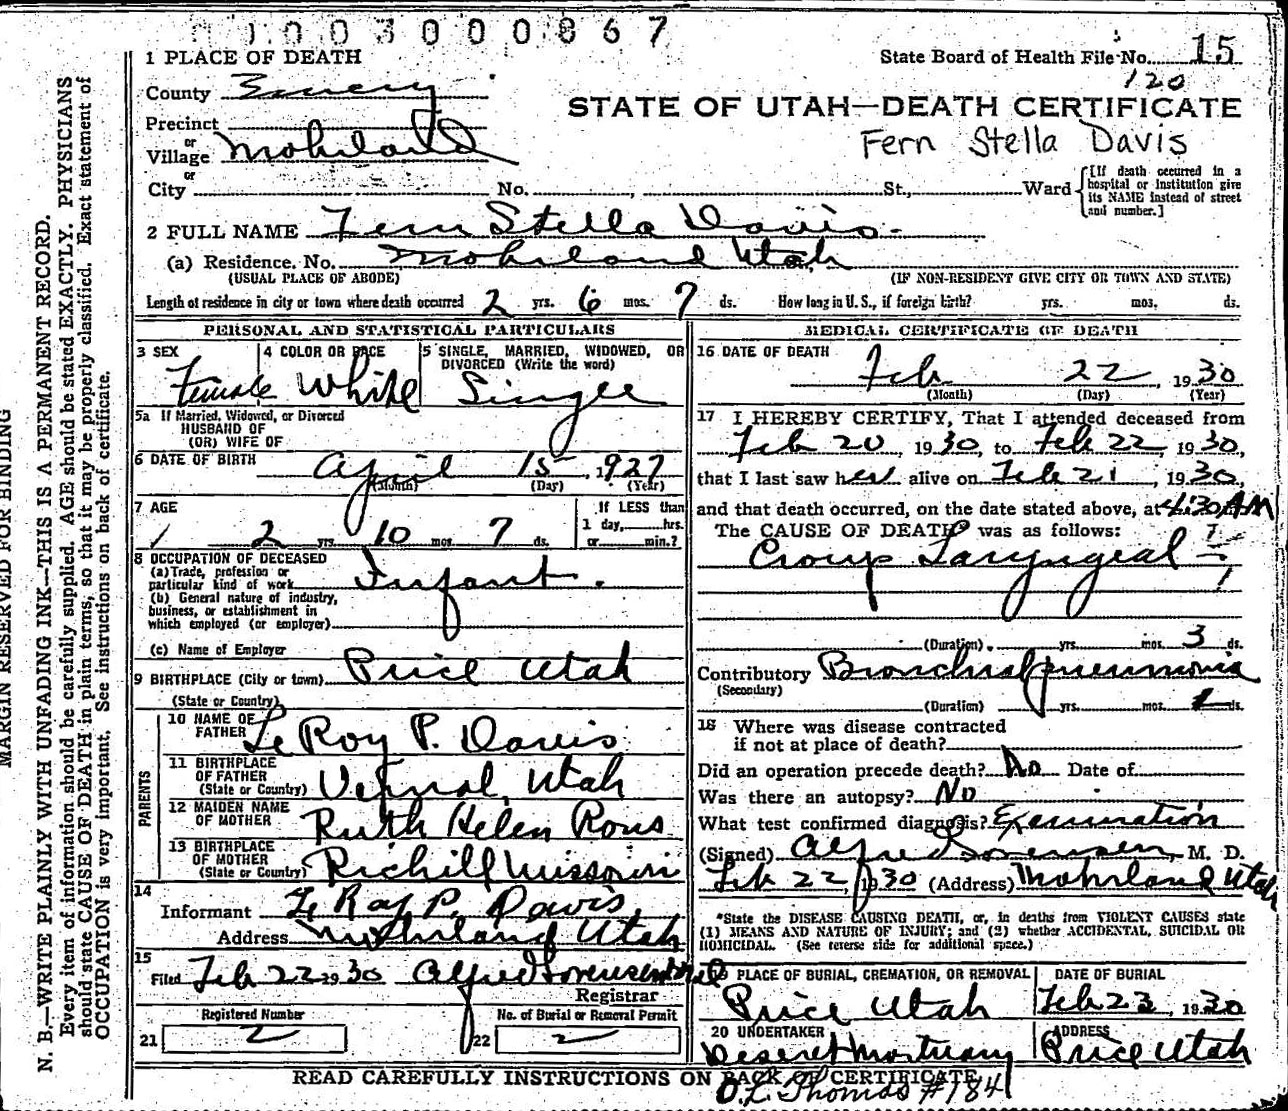 0 0 3 0 0 0 8 6 7
1 PLACE OF DEATH
State Board of Health File No. 15
120
County Emery
STATE OF UTAH—DEATH CERTIFICATE
Precinct
or
Village Mohrland
Fern Stella Davis
or
City No. St., Ward
[If death occurred in a hospital or institution give its NAME instead of street and number.]
2 FULL NAME Fern Stella Davis.
(a) Residence. No. Mohrland Utah
(USUAL PLACE OF ABODE) (IF NON-RESIDENT GIVE CITY OR TOWN AND STATE)
Length of residence in city or town where death occurred 2 yrs. 6 mos. 7 ds. How long in U. S., if foreign birth? yrs. mos. ds.
PERSONAL AND STATISTICAL PARTICULARS
3 SEX Female
4 COLOR OR RACE White
5 SINGLE, MARRIED, WIDOWED, OR DIVORCED (Write the word) Single
5a If Married, Widowed, or Divorced
HUSBAND OF
(OR) WIFE OF
6 DATE OF BIRTH April 15, 1927
(Month) (Day) (Year)
7 AGE 2 yrs. 10 mos. 7 ds.
If LESS than
1 day, hrs.
or min.?
8 OCCUPATION OF DECEASED
(a) Trade, profession or
particular kind of work Infant.
(b) General nature of industry,
business, or establishment in
which employed (or employer)
(c) Name of Employer
9 BIRTHPLACE (City or town) Price Utah
(State or Country)
PARENTS
10 NAME OF FATHER LeRoy P. Davis
11 BIRTHPLACE OF FATHER (State or Country) Vernal, Utah
12 MAIDEN NAME OF MOTHER Ruth Helen Rous
13 BIRTHPLACE OF MOTHER (State or Country) Richill Missouri
14
Informant LeRoy P. Davis,
Address Mohrland Utah
15
Filed Feb 22 1930 Alfred Sorensen
Registrar
Registered Number
21 2
No. of Burial or Removal Permit
22 2
MEDICAL CERTIFICATE OF DEATH
16 DATE OF DEATH
Feb 22, 1930
(Month) (Day) (Year)
17 I HEREBY CERTIFY, That I attended deceased from
Feb 20, 1930, to Feb 22, 1930,
that I last saw her alive on Feb 21, 1930,
and that death occurred, on the date stated above, at 4:30 AM
The CAUSE OF DEATH was as follows:
Croup Laryngeal
(Duration) yrs. mos. 3 ds.
Contributory Bronchial pneumonia
(Secondary)
(Duration) yrs. mos. ds.
18 Where was disease contracted
if not at place of death?
Did an operation precede death? No Date of
Was there an autopsy? No
What test confirmed diagnosis? Examination
(Signed) Alfred Sorensen, M. D.
Feb 22, 1930 (Address) Mohrland Utah
*State the DISEASE CAUSING DEATH, or, in deaths from VIOLENT CAUSES state
(1) MEANS AND NATURE OF INJURY; and (2) whether ACCIDENTAL, SUICIDAL OR
HOMICIDAL. (See reverse side for additional space.)
PLACE OF BURIAL, CREMATION, OR REMOVAL
Price Utah
DATE OF BURIAL
Feb 23, 1930
20 UNDERTAKER
Deseret Mortuary
ADDRESS
Price Utah
READ CAREFULLY INSTRUCTIONS ON BACK OF CERTIFICATE
O.L. Thomas #184
MARGIN RESERVED FOR BINDING
N. B.—WRITE PLAINLY WITH UNFADING INK—THIS IS A PERMANENT RECORD.
Every item of information should be carefully supplied. AGE should be stated EXACTLY. PHYSICIANS
should state CAUSE OF DEATH in plain terms, so that it may be properly classified. Exact statement of
OCCUPATION is very important. See instructions on back of certificate.